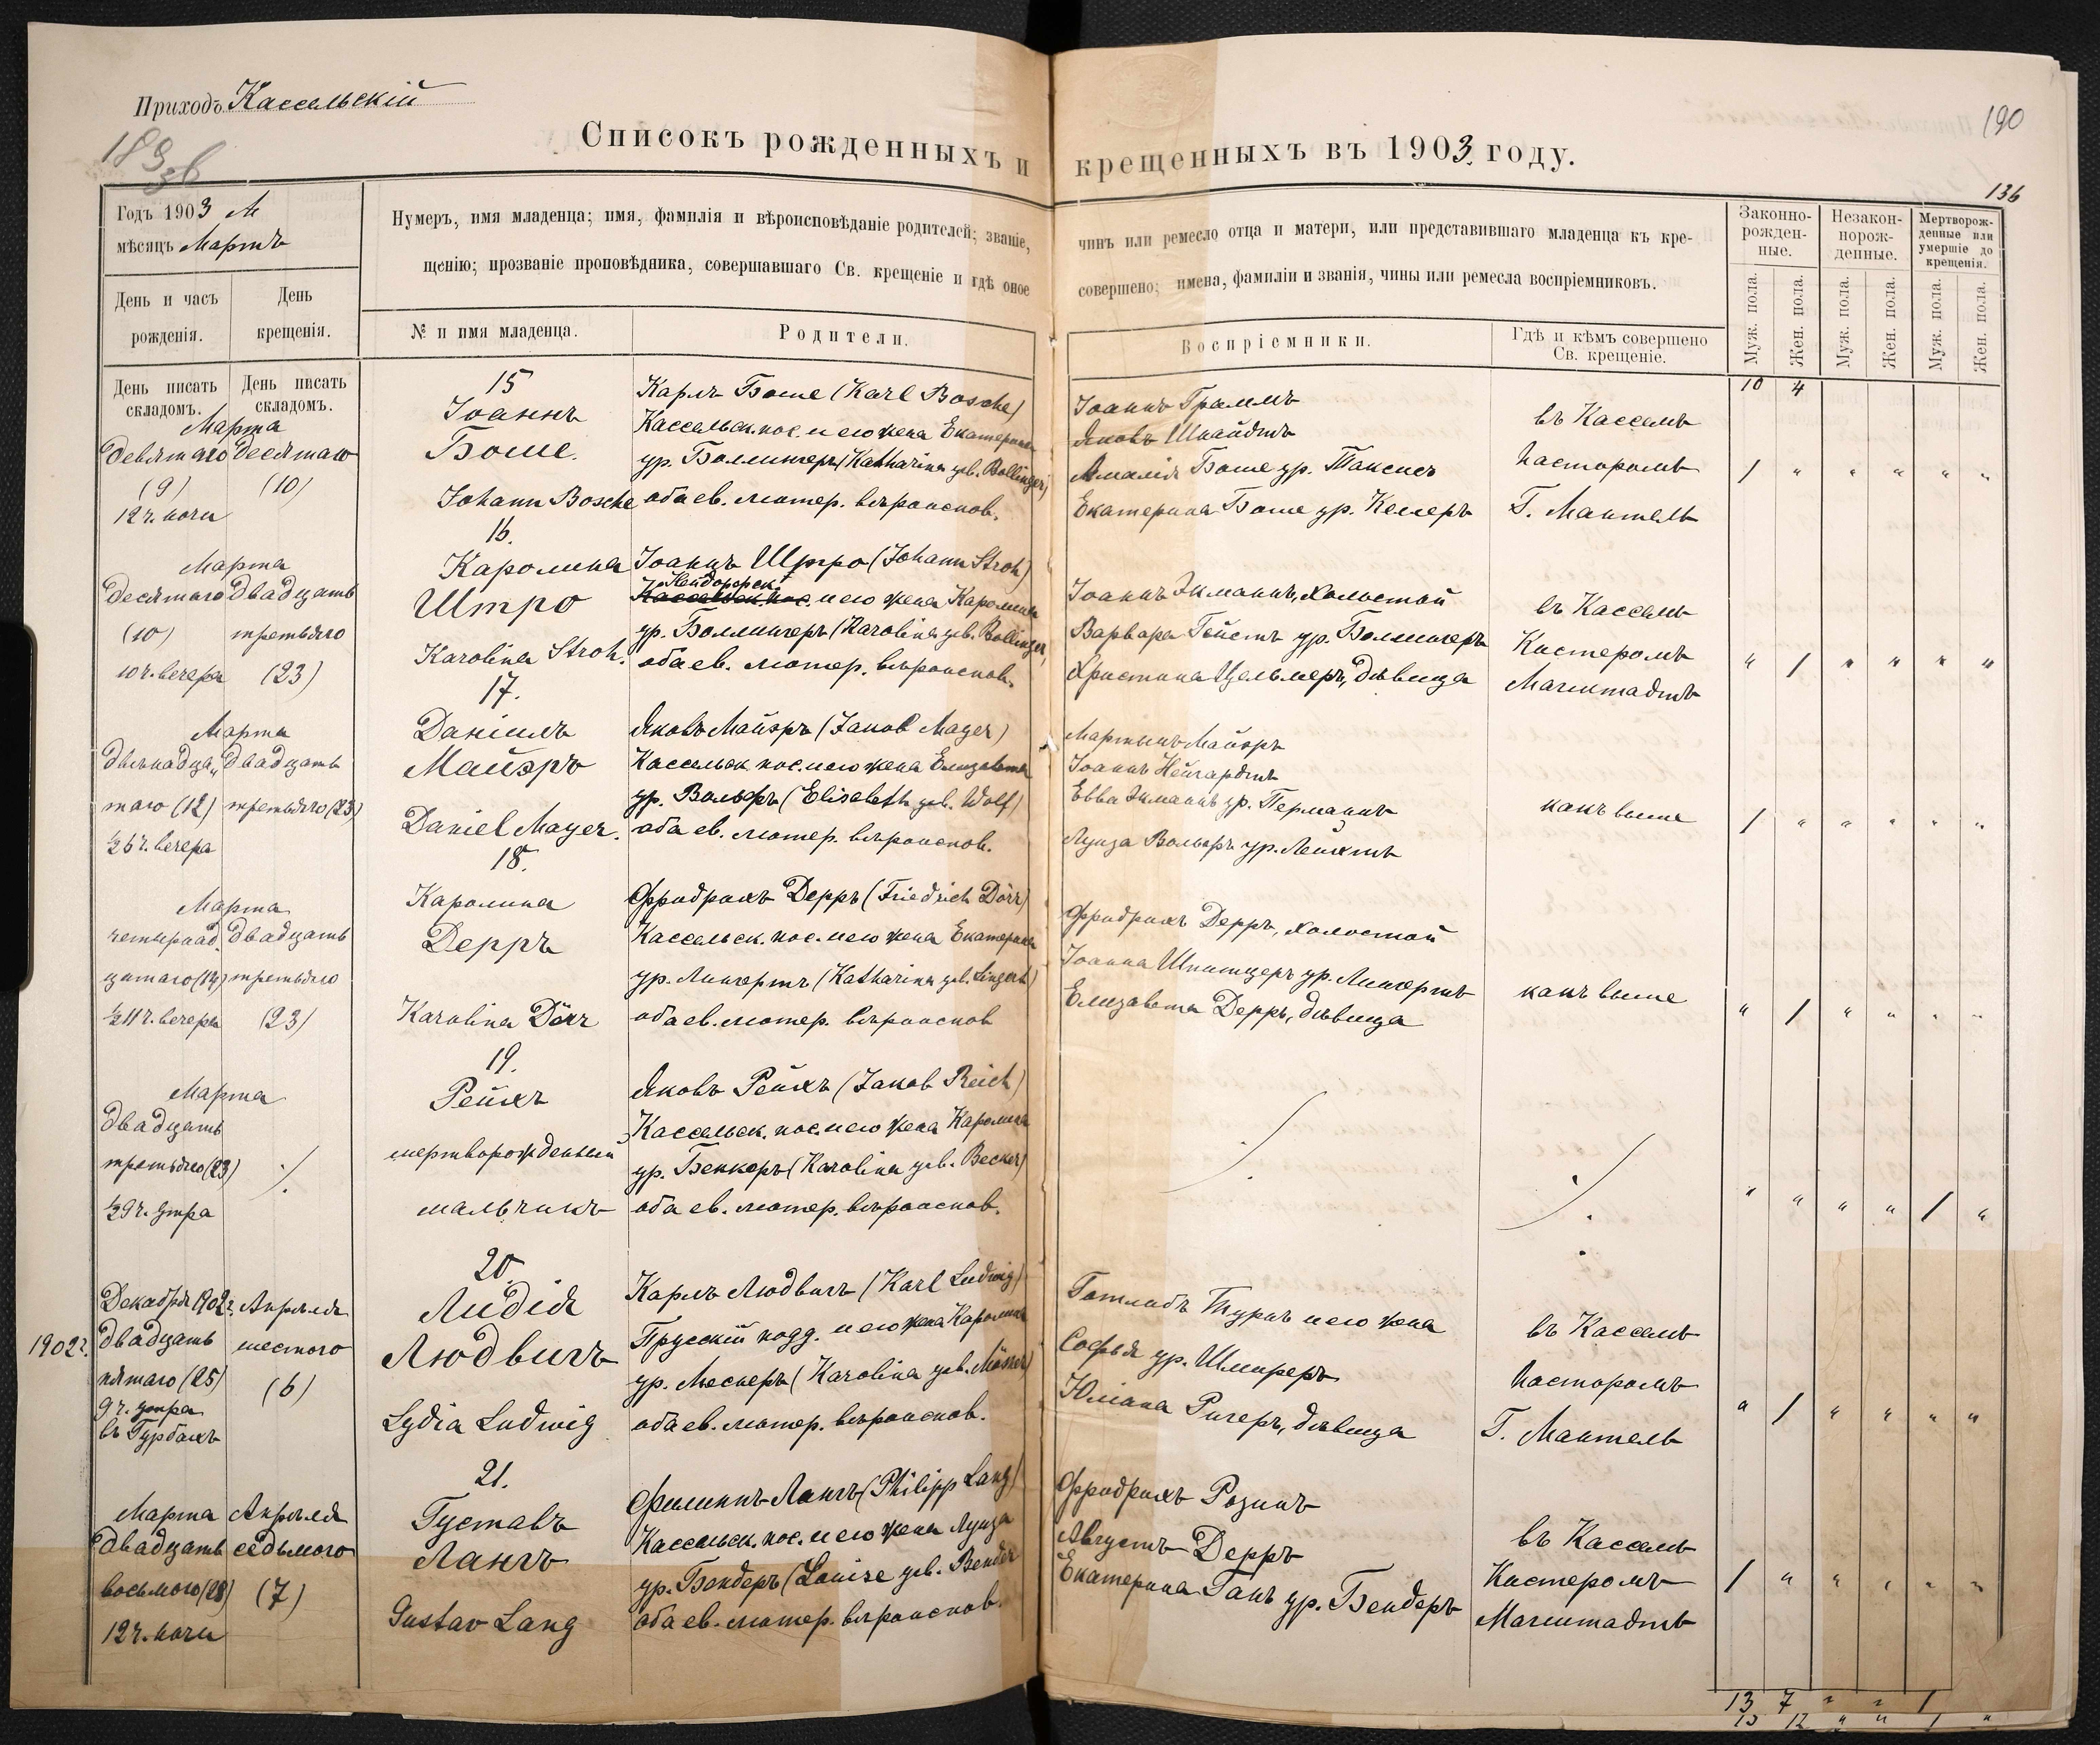 Приходъ Кассельскій
190
136
Списокъ рожденныхъ и крещенныхъ въ 1903. году.
Годъ 1903 М
мѣсяцъ Мартъ
День и часъ рожденія.
День крещенія.
Нумеръ, имя младенца; имя, фамилія и вѣроисповѣданіе родителей; званіе, чинъ или ремесло отца и матери, или представившаго младенца къ кре-
щенію; прозваніе проповѣдника, совершавшаго Св. крещеніе и гдѣ оное совершено; имена, фамиліи и званія, чины или ремесла воспріемниковъ.
№ и имя младенца.
Родители.
Воспріемники.
Гдѣ и кѣмъ совершено
Св. крещеніе.
Законно-
рожден-
ные.
Незакон-
норож-
денные.
Мертворож-
денные или
умершіе до
крещенія.
Муж. пола.
Жен. пола.
Муж. пола.
Жен. пола.
Муж. пола.
Жен. пола.
День писать
складомъ.
День писать
складомъ.
10 4
Марта
девятаго
(9)
12 ч. ночи
десятаго
(10)
15
Іоаннъ
Боше.
Johann Bosche
Карлъ Боше (Karl Bosche)
Кассельск. пос. и его жена Екатерина
ур. Боллингеръ (Katharina geb. Bollinger)
оба ев. лютер. вѣроиспов.
Іоаннъ Граммъ
Яковъ Шнайдтъ
Амалія Боше ур.
Екатерина Боше ур. Келеръ
въ Касселѣ
Пасторомъ
Г. Мантель
1 " " " " "
Марта
десятаго
(10)
10 ч. вечера
двадцать
третьяго
(23)
16.
Каролина
Штро
Karolina Stroh.
Іоаннъ Штро (Johann Stroh)
Нейдорфск.
Кассельск. пос. и его жена Каролина
ур. Боллингеръ (Karolina geb. Bollinger,
оба ев. лютер. вѣроиспов.
Іоаннъ Экманнъ, холостой
Варвара Гейстъ ур. Боллингеръ
Христина Цельмеръ, дѣвица
въ Касселѣ
Кистеромъ
Магштадтъ
" 1 " " " "
Марта
двѣнадца„
таго (12)
½ 6 ч. вечера
двадцать
третьяго (23)
17.
Даніилъ
Майэръ
Daniel Mayer.
Яковъ Майэръ (Jakob Mayer)
Кассельск. пос. и его жена Елизавета
ур. Вольфъ (Elisabeth geb. Wolf)
оба ев. лютер. вѣроиспов.
Мартынъ Майэръ
Іоаннъ Нейгардтъ
Евва Экманнъ ур. Германнъ
Луиза Вольфъ ур. Лейхтъ
какъ выше
1 " " " " "
Марта
четырнад„
цатаго (14)
½ 11 ч. вечера
двадцать
третьяго
(23)
18.
Каролина
Дерръ
Karolina Dörr
Фридрихъ Дерръ (Friedrich Dörr)
Кассельск. пос. и его жена Екатерина
ур. Лингертъ (Katharina geb. Lingert)
оба ев. лютер. вѣроиспов
Фридрихъ Дерръ, холостой
Іоанна Шпитцеръ ур. Лингертъ
Елизавета Дерръ, дѣвица
какъ выше
" 1 " " " "
Марта
двадцать
третьяго (23)
½ 9 ч. утра
19.
Рейхъ
мертворожденный
мальчикъ
Яковъ Рейхъ (Jakob Reich)
Кассельск. пос. и его жена Каролина
ур. Беккеръ (Karolina geb. Becker)
оба ев. лютер. вѣроиспов.
" " " " 1 "
1902 г.
Декабря 1902 г.
двадцать
пятаго (25)
9 ч. утра
въ Гурбахъ
Апрѣля
шестого
(6)
20.
Лидія
Людвигъ
Lydia Ludwig
Карлъ Людвигъ (Karl Ludwig)
Прусскій подд. и его жена Каролина
ур. Меснеръ (Karolina geb. Mössner)
оба ев. лютер. вѣроиспов.
Готлибъ Туръ и его жена
Софья ур. Шмиреръ
Юліана Ригеръ, дѣвица
въ Касселѣ
Пасторомъ
Г. Мантель
" 1 " " " "
Марта
двадцать
восьмого (28)
12 ч. ночи
Апрѣля
седьмого
(7)
21.
Густавъ
Лангъ
Gustav Lang
Филиппъ Лангъ (Philipp Lang)
Кассельск. пос. и его жена Луиза
ур. Бендеръ (Louise geb. Bender
оба ев. лютер. вѣроиспов.
Фридрихъ Розинъ
Августъ Дерръ
Екатерина Ганъ ур. Бендеръ
въ Касселѣ
Кистеромъ
Магштадтъ
1 " " " " "
13 7 " " 1
12 " " 1 "